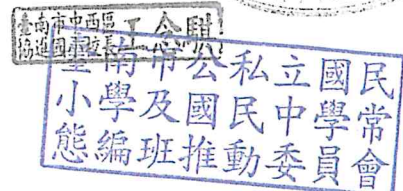 臺南市中西區
協進國小校長王念騏
臺南市公私立國民
小學及國民中學常
態編班推動委員會